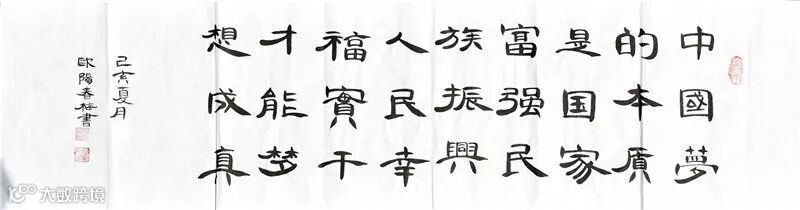 中國夢
的本质
是国家
富强民
族振興
人民幸
福實干
才能梦
想成真
己亥夏月
歐陽春梅書
大数跨境